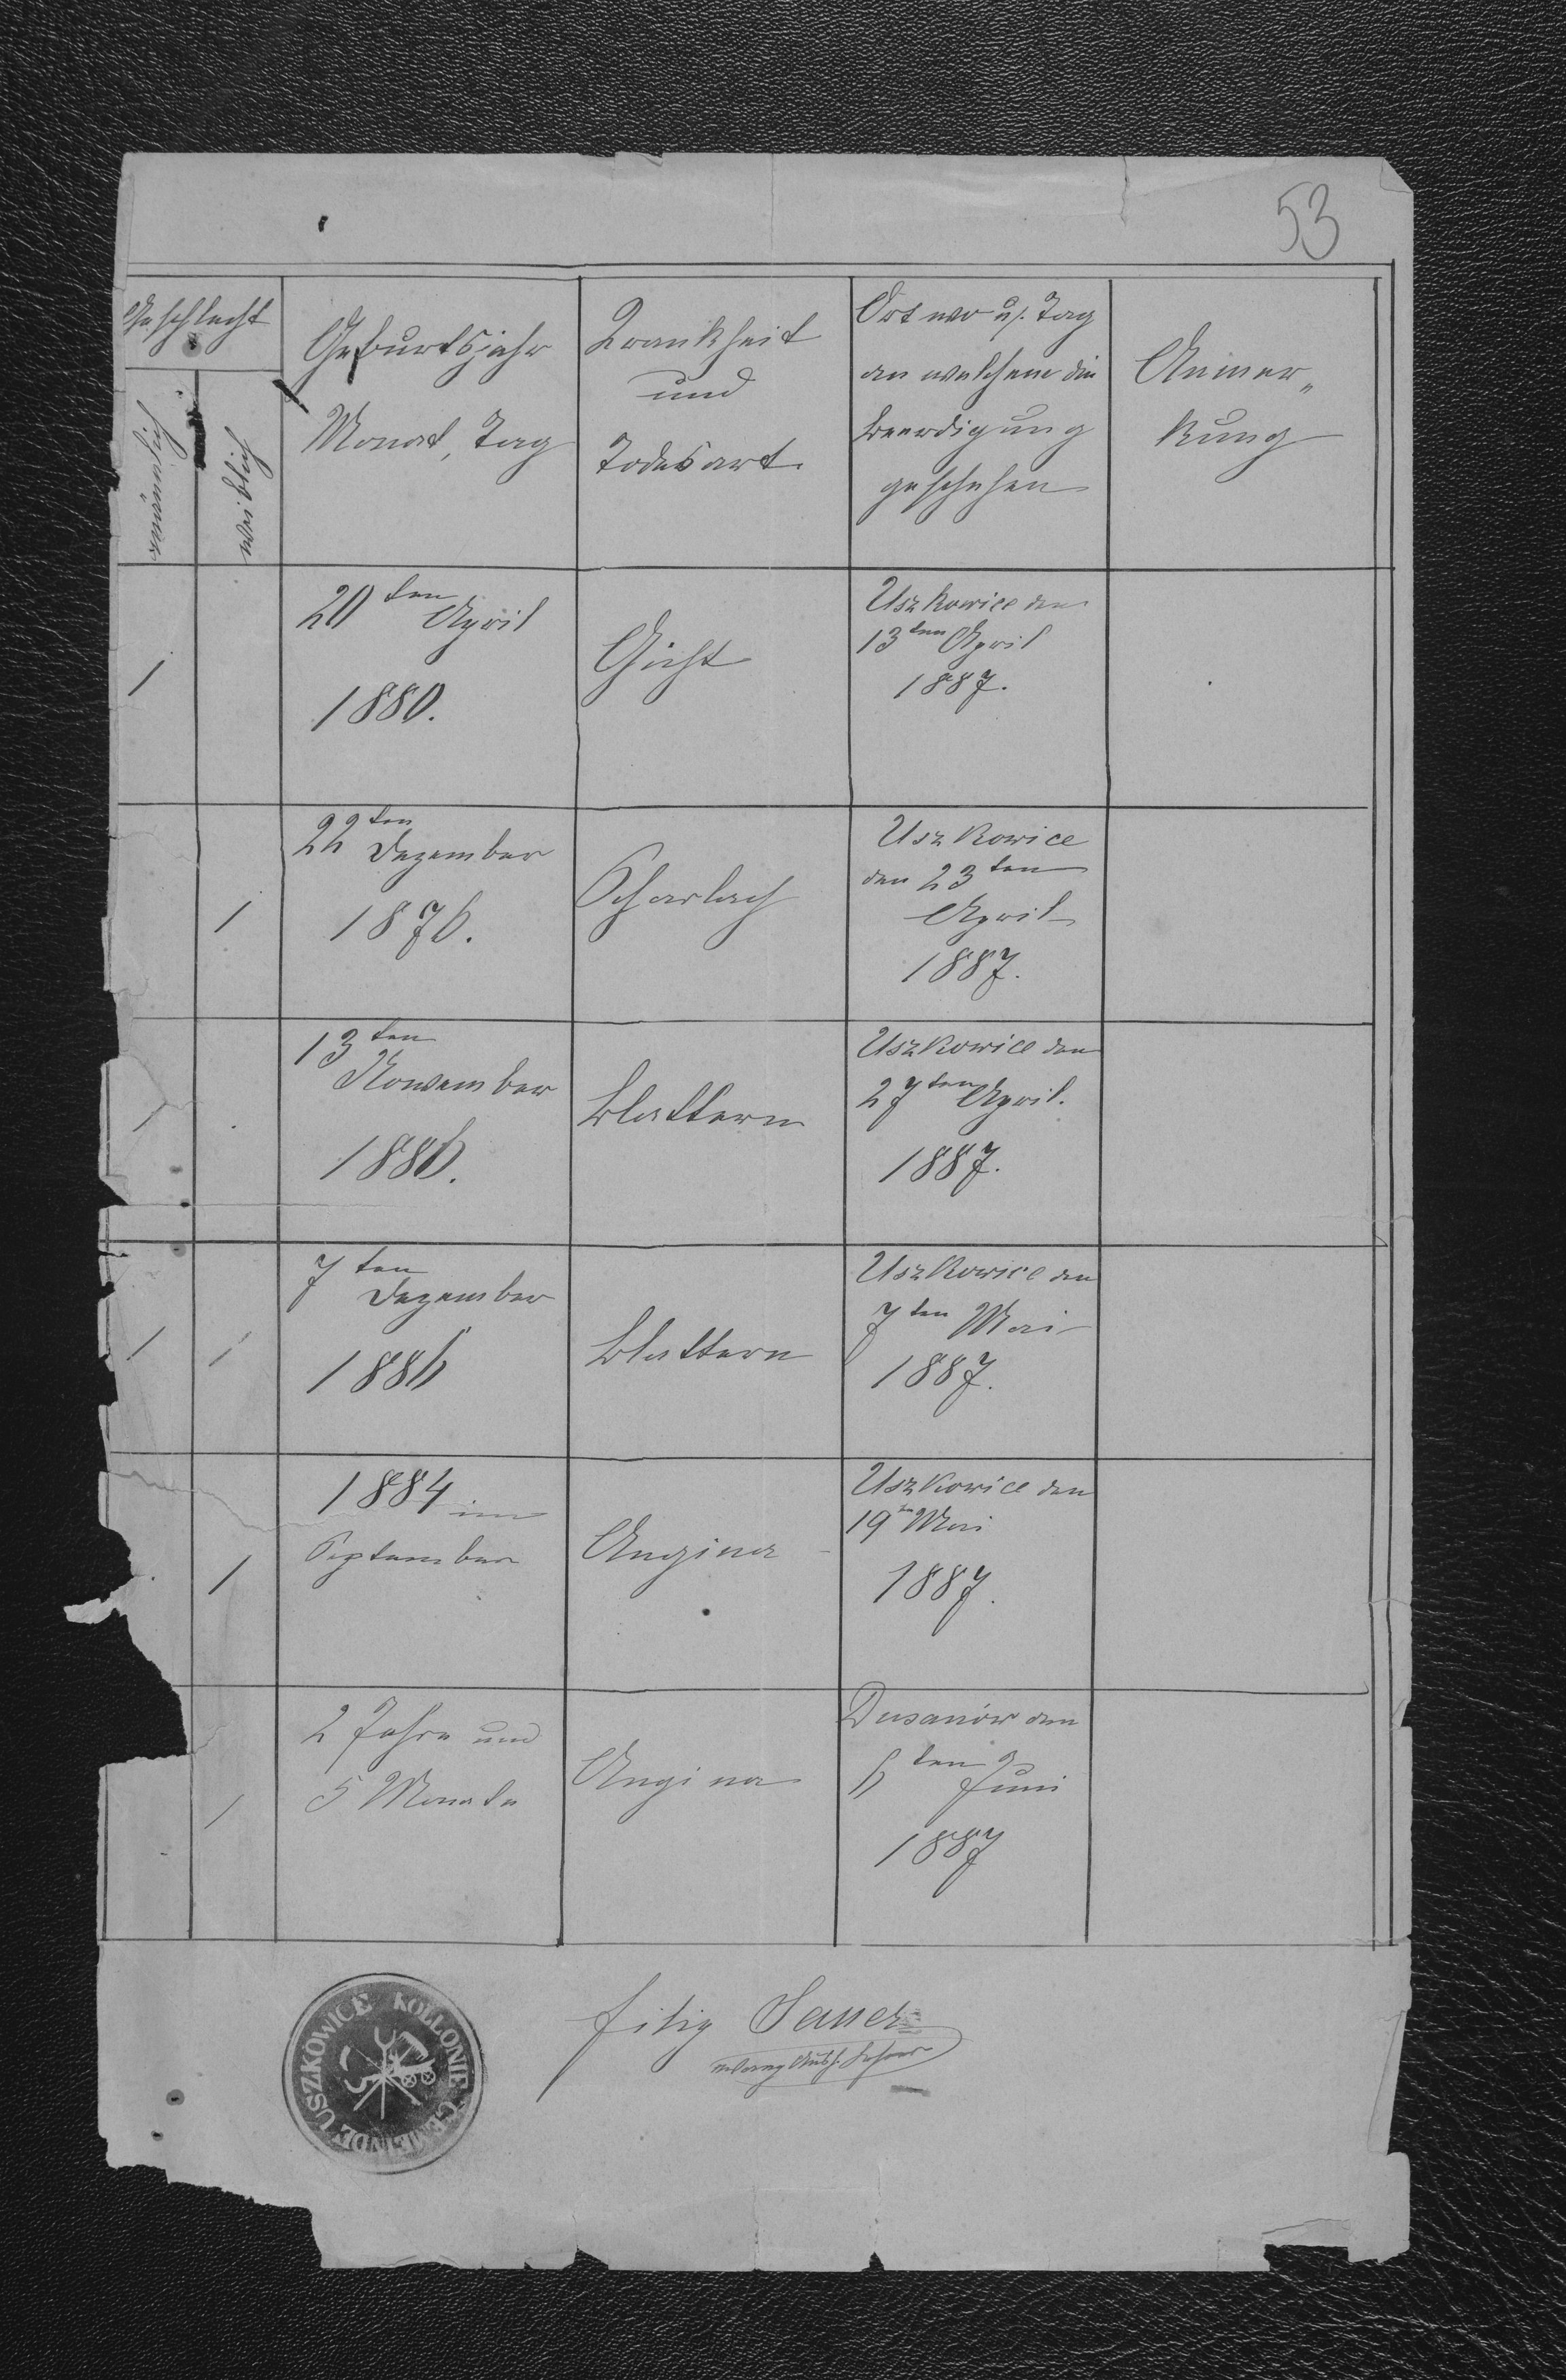 53
Geschlecht
männlich
weiblich
Geburtsjahr
Monat, Tag
Krankheit
und
Todesart
Ort wo u. Tag
an welchem die
Beerdigung
geschehen
Anmer„
kung
1
20ten April
1880.
Gicht
Uszkowice den
13ten April
1887.
1
22ten Dezember
1876.
Scharlach
Uszkowice
den 23ten
April
1887.
1
13ten
November
1886.
Blattern
Uszkowice den
27ten April.
1887.
1
1
7ten
Dezember
1886
Blattern
Uszkowice den
7ten Mai
1887.
1
1884 im
September
Angina
Uszkowice den
19ten Mai
1887.
1
2 Jahre und
5 Monate
Angina
Dusanów den
6ten Juni
1887
Filip Sauer
KOLLONIE GEMEINDE USZKOWICE